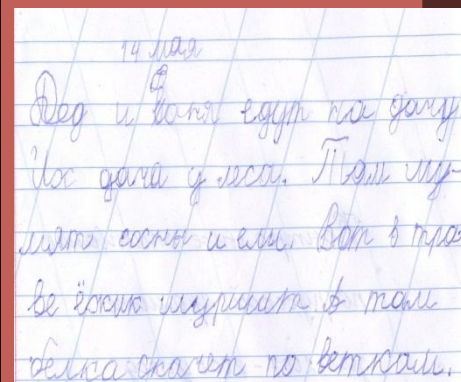 14 мая
Дед и Ваня едут на дачу
Их дача у леса. Там шу-
мят сосны и ели. Вот в тра-
ве ёжик шуршит А там
белка скачет по веткам.